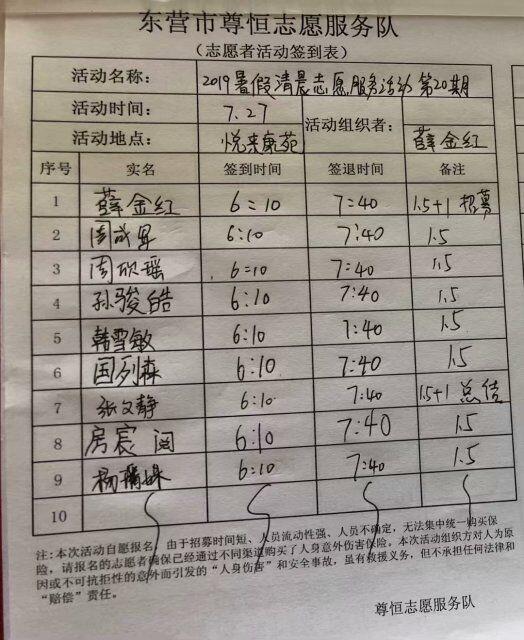 东营市尊恒志愿服务队
(志愿者活动签到表)
活动名称: 2019暑假清晨志愿服务活动 第20期
活动时间: 7.27 活动组织者: 薛金红
活动地点: 悦来康苑
序号 实名 签到时间 签退时间 备注
1 薛金红 6:10 7:40 1.5+1 招募
2 周成昱 6:10 7:40 1.5
3 周欣瑶 6:10 7:40 1.5
4 孙骏皓 6:10 7:40 1.5
5 韩雪敏 6:10 7:40 1.5
6 国列森 6:10 7:40 1.5
7 张文静 6:10 7:40 1.5+1 总结
8 房宸 6:10 7:40 1.5
9 杨 6:10 7:40 1.5
10
注:本次活动自愿报名,由于招募时间短、人员流动性强、人员不确定,无法集中统一购买保
险,请报名的志愿者确保已经通过不同渠道购买了人身意外伤害保险。本次活动组织方对人为原
因或不可抗拒性的意外而引发的“人身伤害”和安全事故,虽有救援义务,但不承担任何法律和
“赔偿”责任。
尊恒志愿服务队